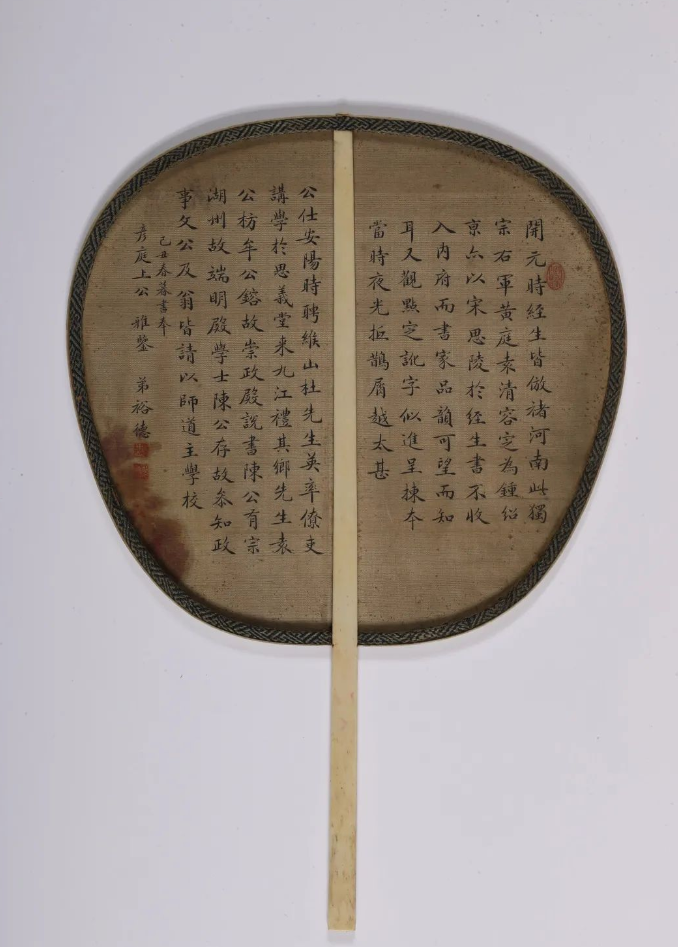 開元時經生皆倣褚河南此獨
宗右軍黃庭袁清容定為鍾紹
京亦以宋思陵於經生書不收
入內府而書家品韻可望而知
耳又觀點定訛字似進呈揀本
當時夜光抵鵲屑越太甚
公仕安陽時聘維山杜先生英率僚吏
講學於思義堂来九江禮其鄉先生袁
公枋牟公鎔故崇政殿說書陳公育宗
湖州故端明殿學士陳公存故叅知政
事文公及翁皆請以師道主學校
己丑春暮書奉
彥庭上公 雅鑒 弟裕德